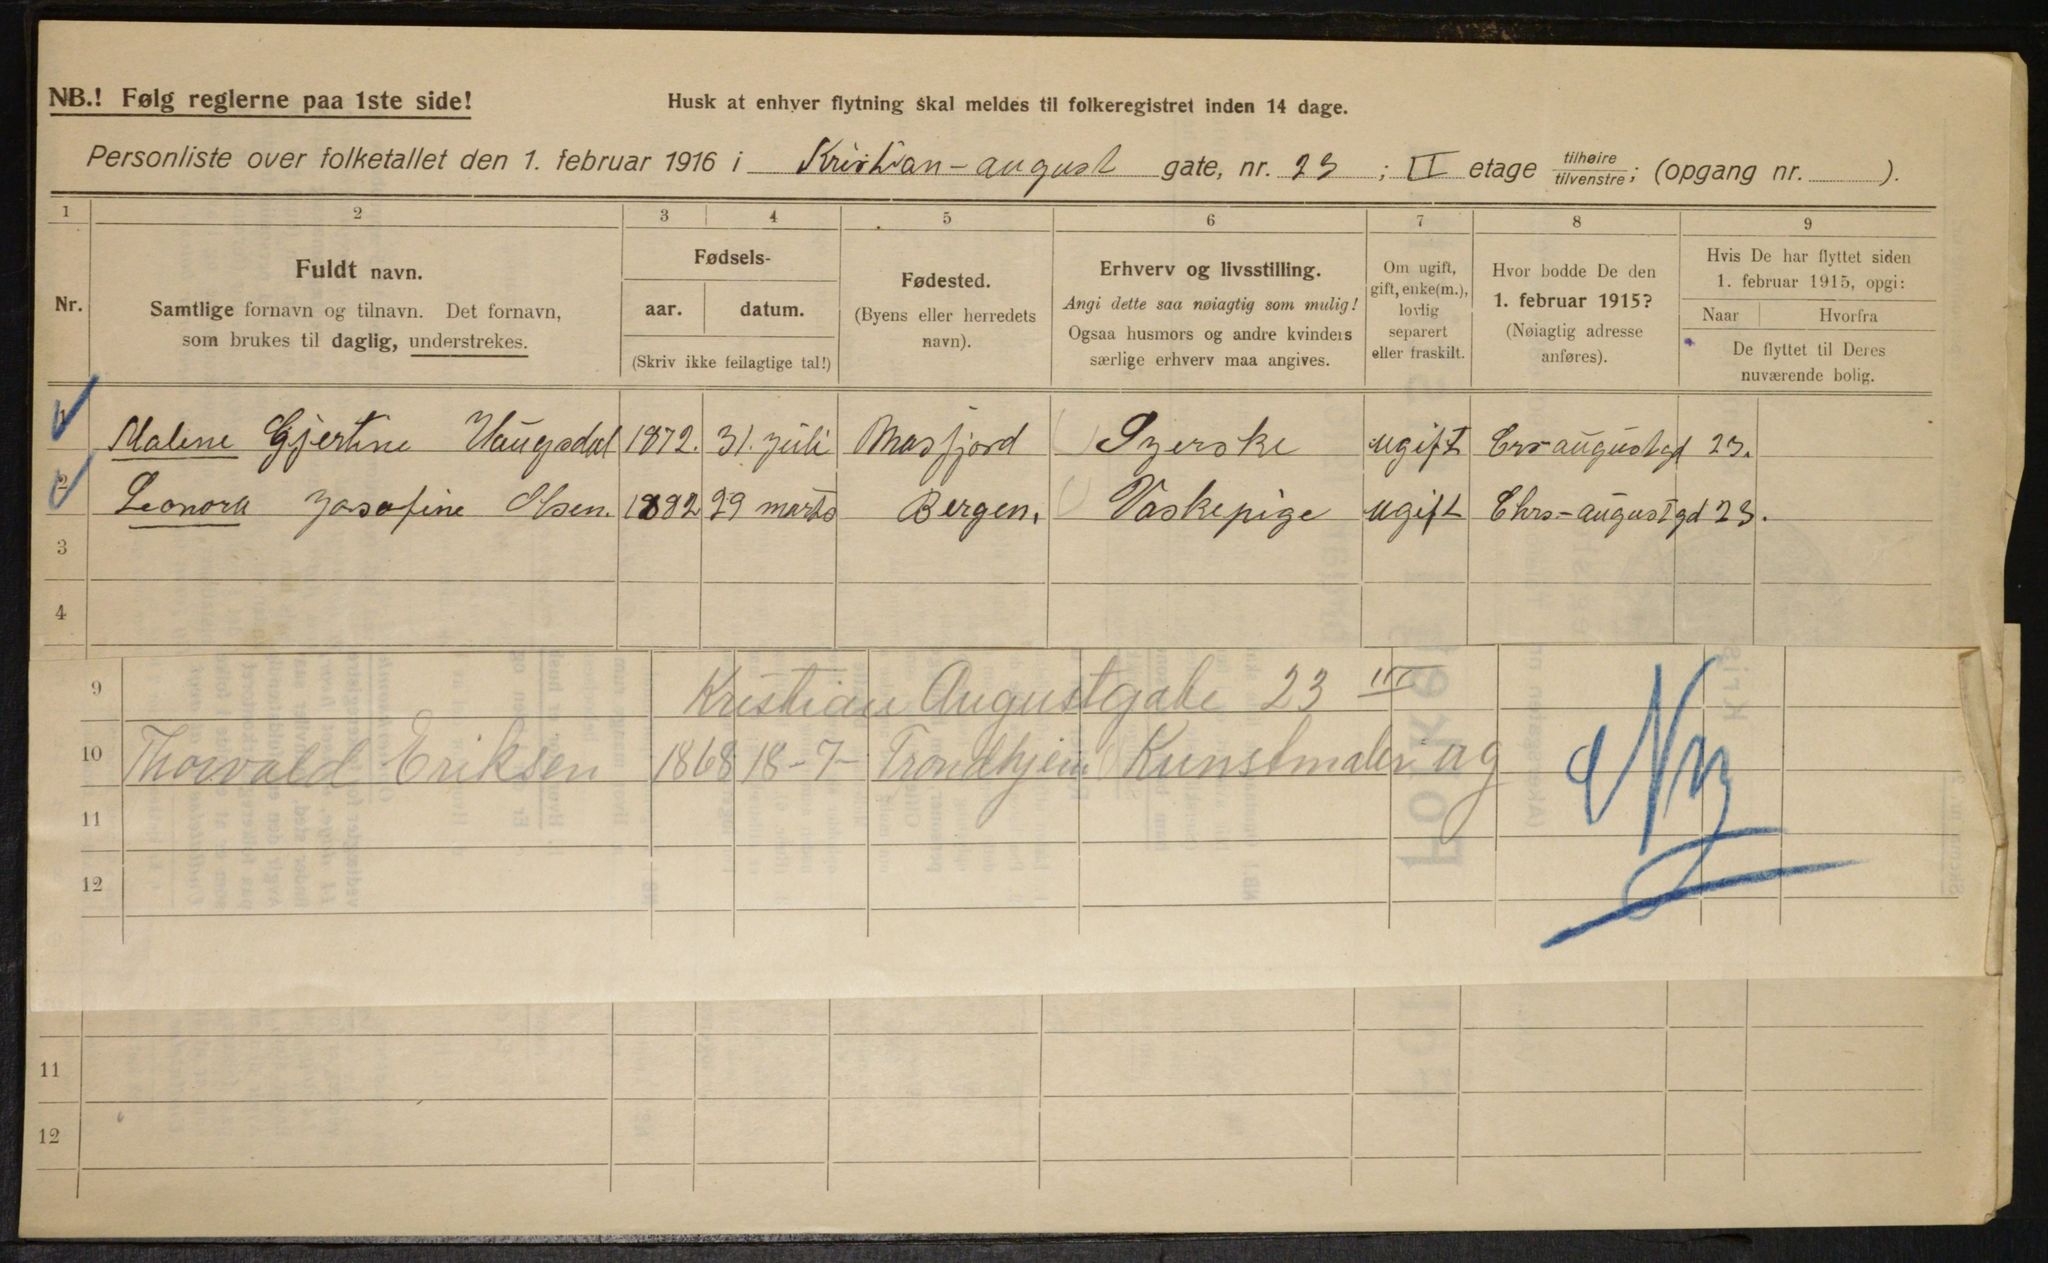 NB.! Følg reglerne paa 1ste side! Husk at enhver flytning skal meldes til folkeregistret inden 14 dage.
Personliste over folketallet den 1. februar 1916 i Kristian-august gate, nr. 23; II etage tilhøire/tilvenstre; (opgang nr. ).
1 2 3 4 5 6 7 8 9
Nr.
Fuldt navn.
Samtlige fornavn og tilnavn. Det fornavn,
som brukes til daglig, understrekes.
Fødsels-
aar. datum.
(Skriv ikke feilagtige tal!)
Fødested.
(Byens eller herredets
navn).
Erhverv og livsstilling.
Angi dette saa nøiagtig som mulig!
Ogsaa husmors og andre kvinders
særlige erhverv maa angives.
Om ugift,
gift, enke(m.),
lovlig
separert
eller fraskilt.
Hvor bodde De den
1. februar 1915?
(Nøiagtig adresse
anføres).
Hvis De har flyttet siden
1. februar 1915, opgi:
Naar Hvorfra
De flyttet til Deres
nuværende bolig.
1 Malene Gjertine Haugsdal 1872. 31. juli Masfjord Syerske ugift Crs augustgd 23.
2 Leonora Josefine Olsen. 1882 29 marts Bergen. Vaskepige ugift Chrs-augustgd 23.
3
4
9 Kristian Augustgate 23 III
10 Thorvald Eriksen 1868 18-7- Trondhjem Kunstmaler ug
11
12
11
12